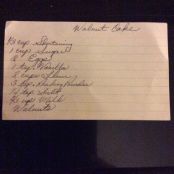 Walnut Cake
1/3 cup Shortening
1 cup Sugar
2 Eggs
1 tsp Vanilla
2 cups Flour
3 tsp Baking Powder
1/2 tsp Salt
cup Milk
Walnuts